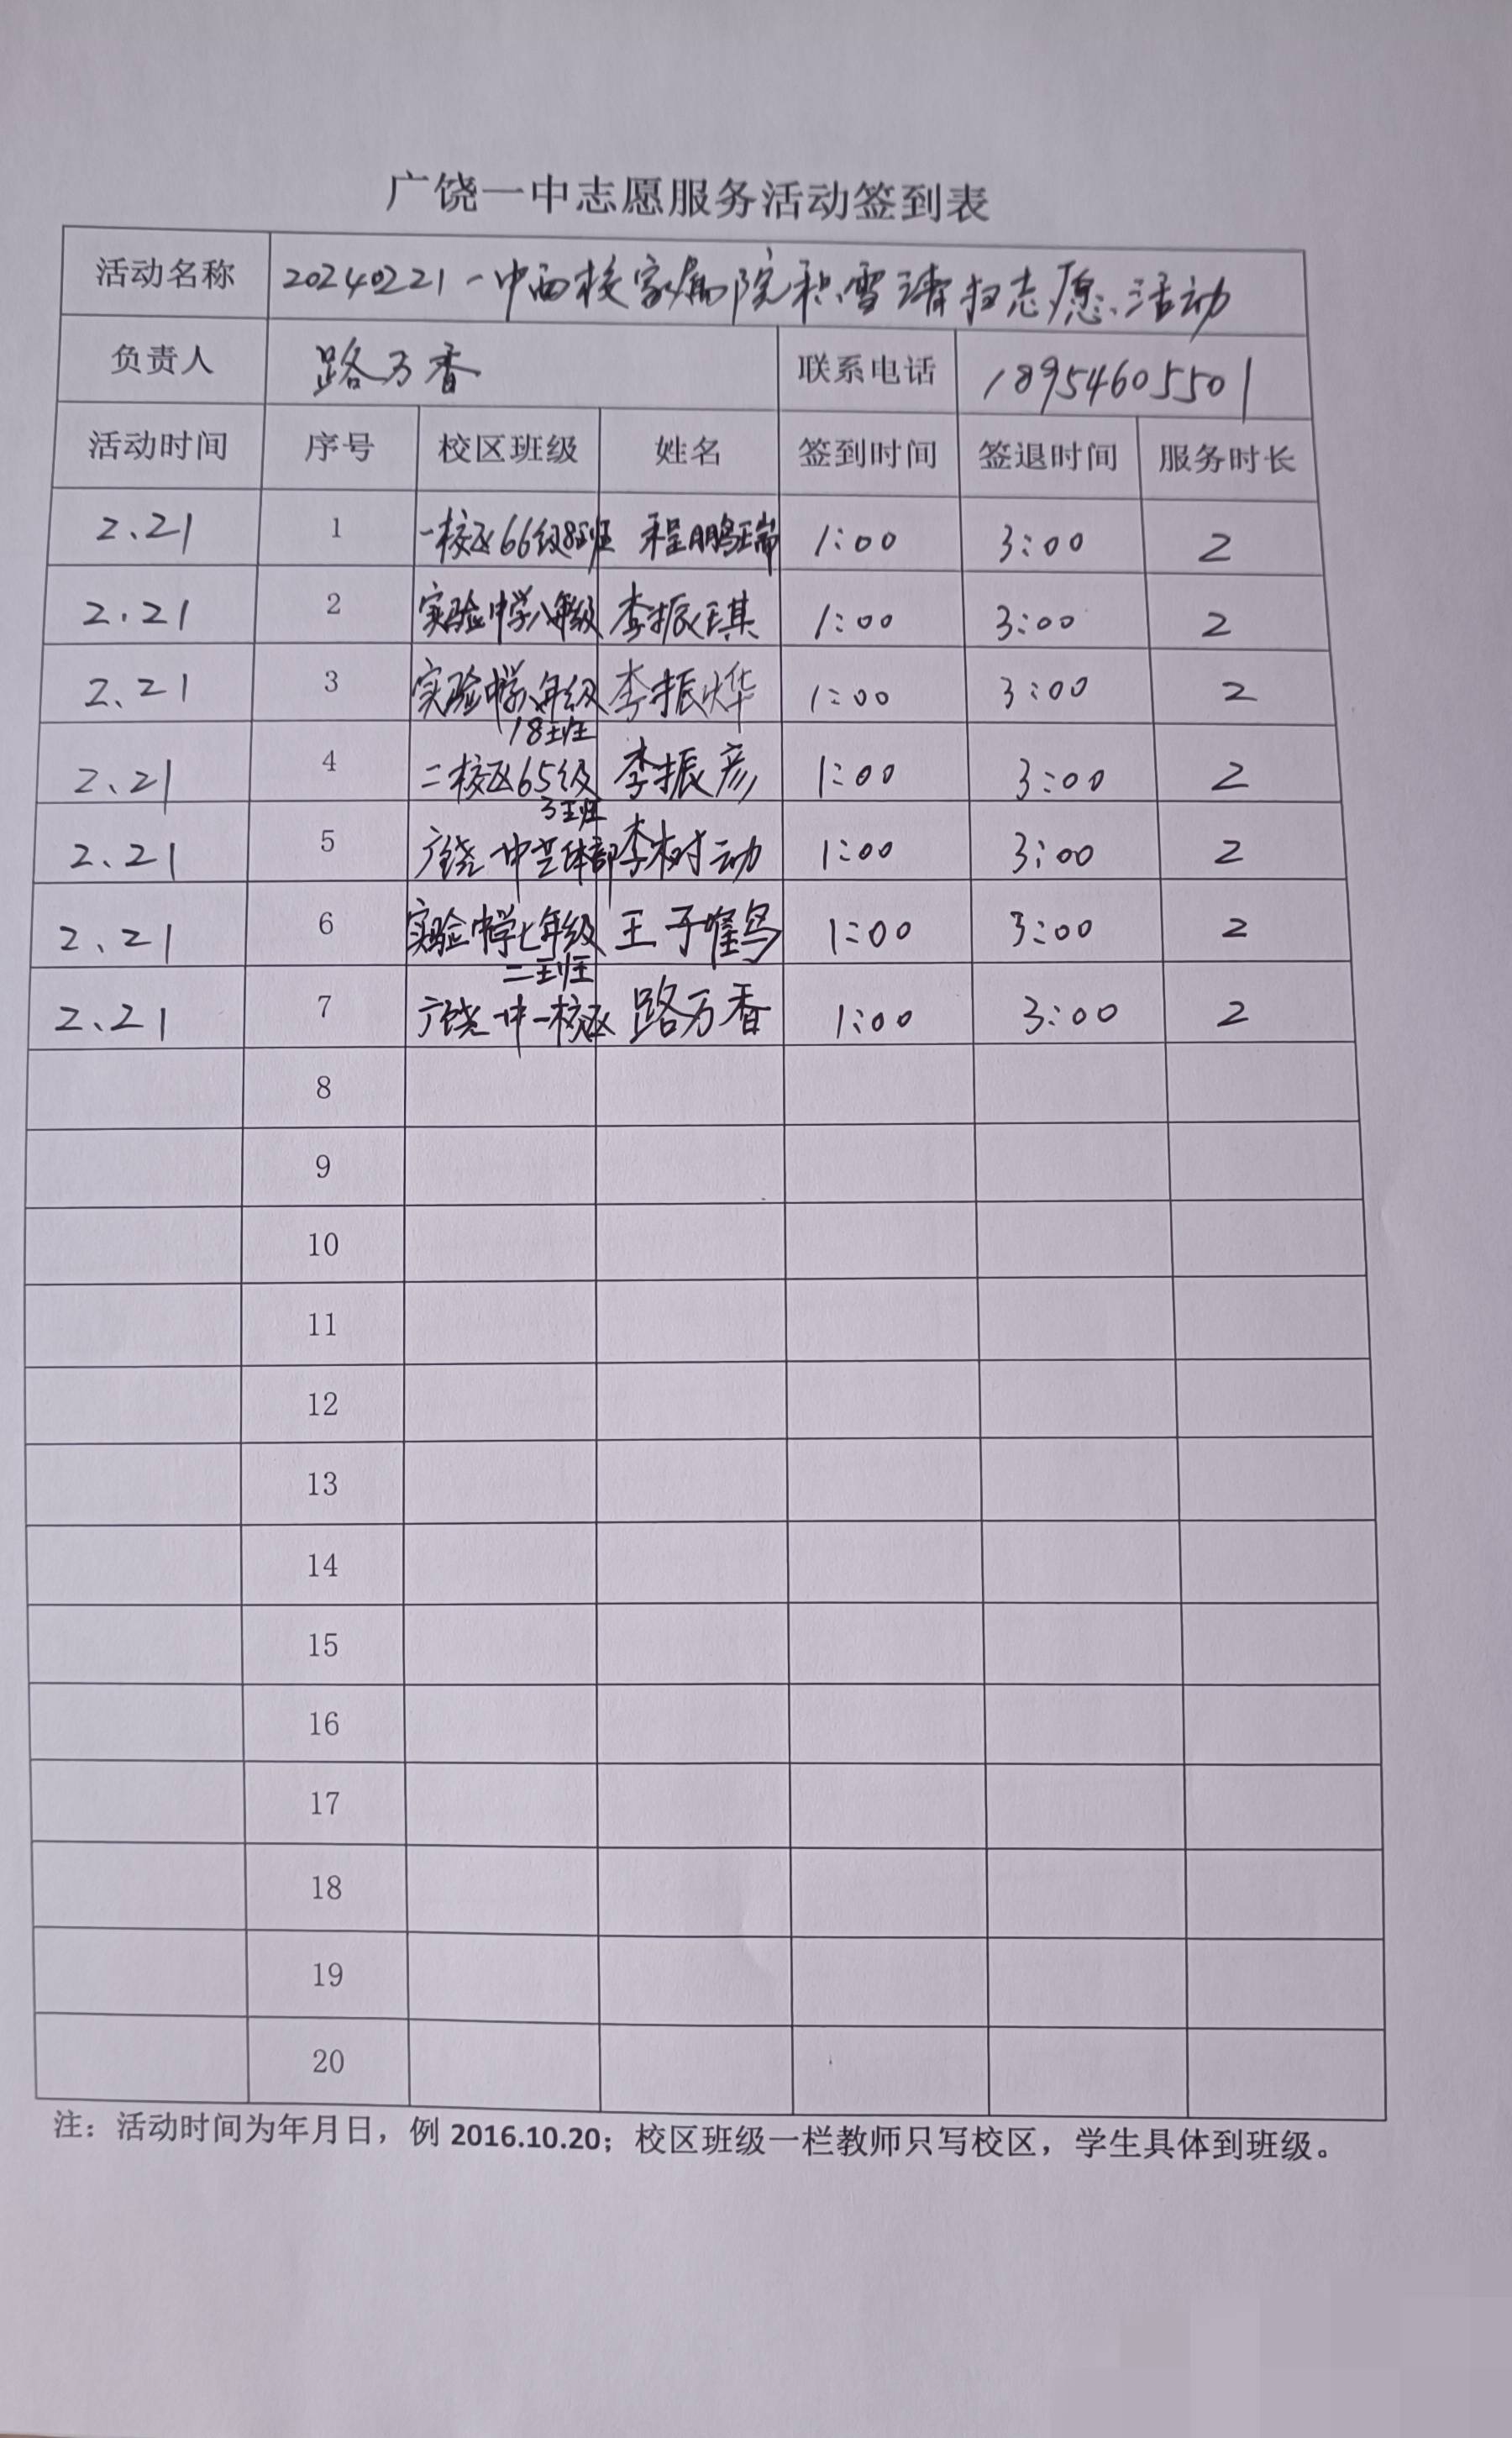 广饶一中志愿服务活动签到表
活动名称 20240221一中西校家属院积雪清扫志愿活动
负责人 路万香 联系电话 18954605501
活动时间 序号 校区班级 姓名 签到时间 签退时间 服务时长
2.21 1 一校区66级8班 程鹏瑞 1:00 3:00 2
2.21 2 实验中学八年级 李振琪 1:00 3:00 2
2.21 3 实验中学八年级 李振烨 1:00 3:00 2
18班
2.21 4 二校区65级 李振彦 1:00 3:00 2
3班
2.21 5 广饶一中艺体部 李树动 1:00 3:00 2
2.21 6 实验中学七年级 王子 1:00 3:00 2
二班
2.21 7 广饶一中一校区 路万香 1:00 3:00 2
8
9
10
11
12
13
14
15
16
17
18
19
20
注：活动时间为年月日，例 2016.10.20；校区班级一栏教师只写校区，学生具体到班级。